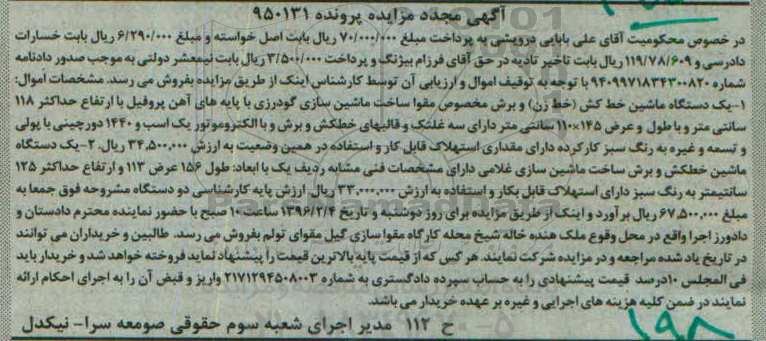 آگهی مجدد مزایده پرونده ۹۵۰۱۳۱
در خصوص محکومیت آقای علی بابایی درویشی به پرداخت مبلغ ۷۰/۰۰۰/۰۰۰ ریال بابت اصل خواسته و مبلغ ۶/۲۹۰/۰۰۰ ریال بابت خسارات
دادرسی و ۱۱۹/۷۸/۶۰۹ ریال بابت تاخیر تادیه در حق آقای فرزام بیژنگ و پرداخت ۳/۵۰۰/۰۰۰ ریال بابت نیمعشر دولتی به موجب صدور دادنامه
شماره ۹۴۰۹۹۷۱۸۳۴۳۰۰۸۲۰ با توجه به توقیف اموال و ارزیابی آن توسط کارشناس اینک از طریق مزایده بفروش می رسد. مشخصات اموال:
۱-یک دستگاه ماشین خط کش (خط زن) و برش مخصوص مقوا ساخت ماشین سازی گودرزی با پایه های آهن پروفیل با ارتفاع حداکثر ۱۱۸
سانتی متر و با طول و عرض ۱۴۵*۱۱۰ سانتی متر دارای سه غلتک و قالبهای خطکش و برش و با الکتروموتور یک اسب و ۱۴۴۰ دورچینی با پولی
و تسمه و غیره به رنگ سبز کارکرده دارای مقداری استهلاک قابل کار و استفاده در همین وضعیت به ارزش ۳۴,۵۰۰,۰۰۰ ریال. ۲-یک دستگاه
ماشین خطکش و برش ساخت ماشین سازی غلامی دارای مشخصات فنی مشابه ردیف یک با ابعاد: طول ۱۵۶ عرض ۱۱۳ و ارتفاع حداکثر ۱۲۵
سانتیمتر به رنگ سبز دارای استهلاک قابل بکار و استفاده به ارزش ۳۳,۰۰۰,۰۰۰ ریال. ارزش پایه کارشناسی دو دستگاه مشروحه فوق جمعا به
مبلغ ۶۷,۵۰۰,۰۰۰ ریال برآورد و اینک از طریق مزایده برای روز دوشنبه و تاریخ ۱۳۹۶/۲/۴ ساعت ۱۰ صبح با حضور نماینده محترم دادستان و
دادورز اجرا واقع در محل وقوع ملک هنده خاله شیخ محله کارگاه مقوا سازی گیل مقوای تولم بفروش می رسد. طالبین و خریداران می توانند
در تاریخ یاد شده مراجعه و در مزایده شرکت نمایند. هر کس که از قیمت پایه بالاترین قیمت را پیشنهاد نماید فروخته خواهد شد و خریدار باید
فی المجلس ۱۰درصد قیمت پیشنهادی را به حساب سپرده دادگستری به شماره ۲۱۷۱۲۹۴۵۰۸۰۰۳ واریز و قبض آن را به اجرای احکام ارائه
نمایند در ضمن کلیه هزینه های اجرایی و غیره بر عهده خریدار می باشد.
ح ۱۱۲ مدیر اجرای شعبه سوم حقوقی صومعه سرا- نیکدل
۱۹۸